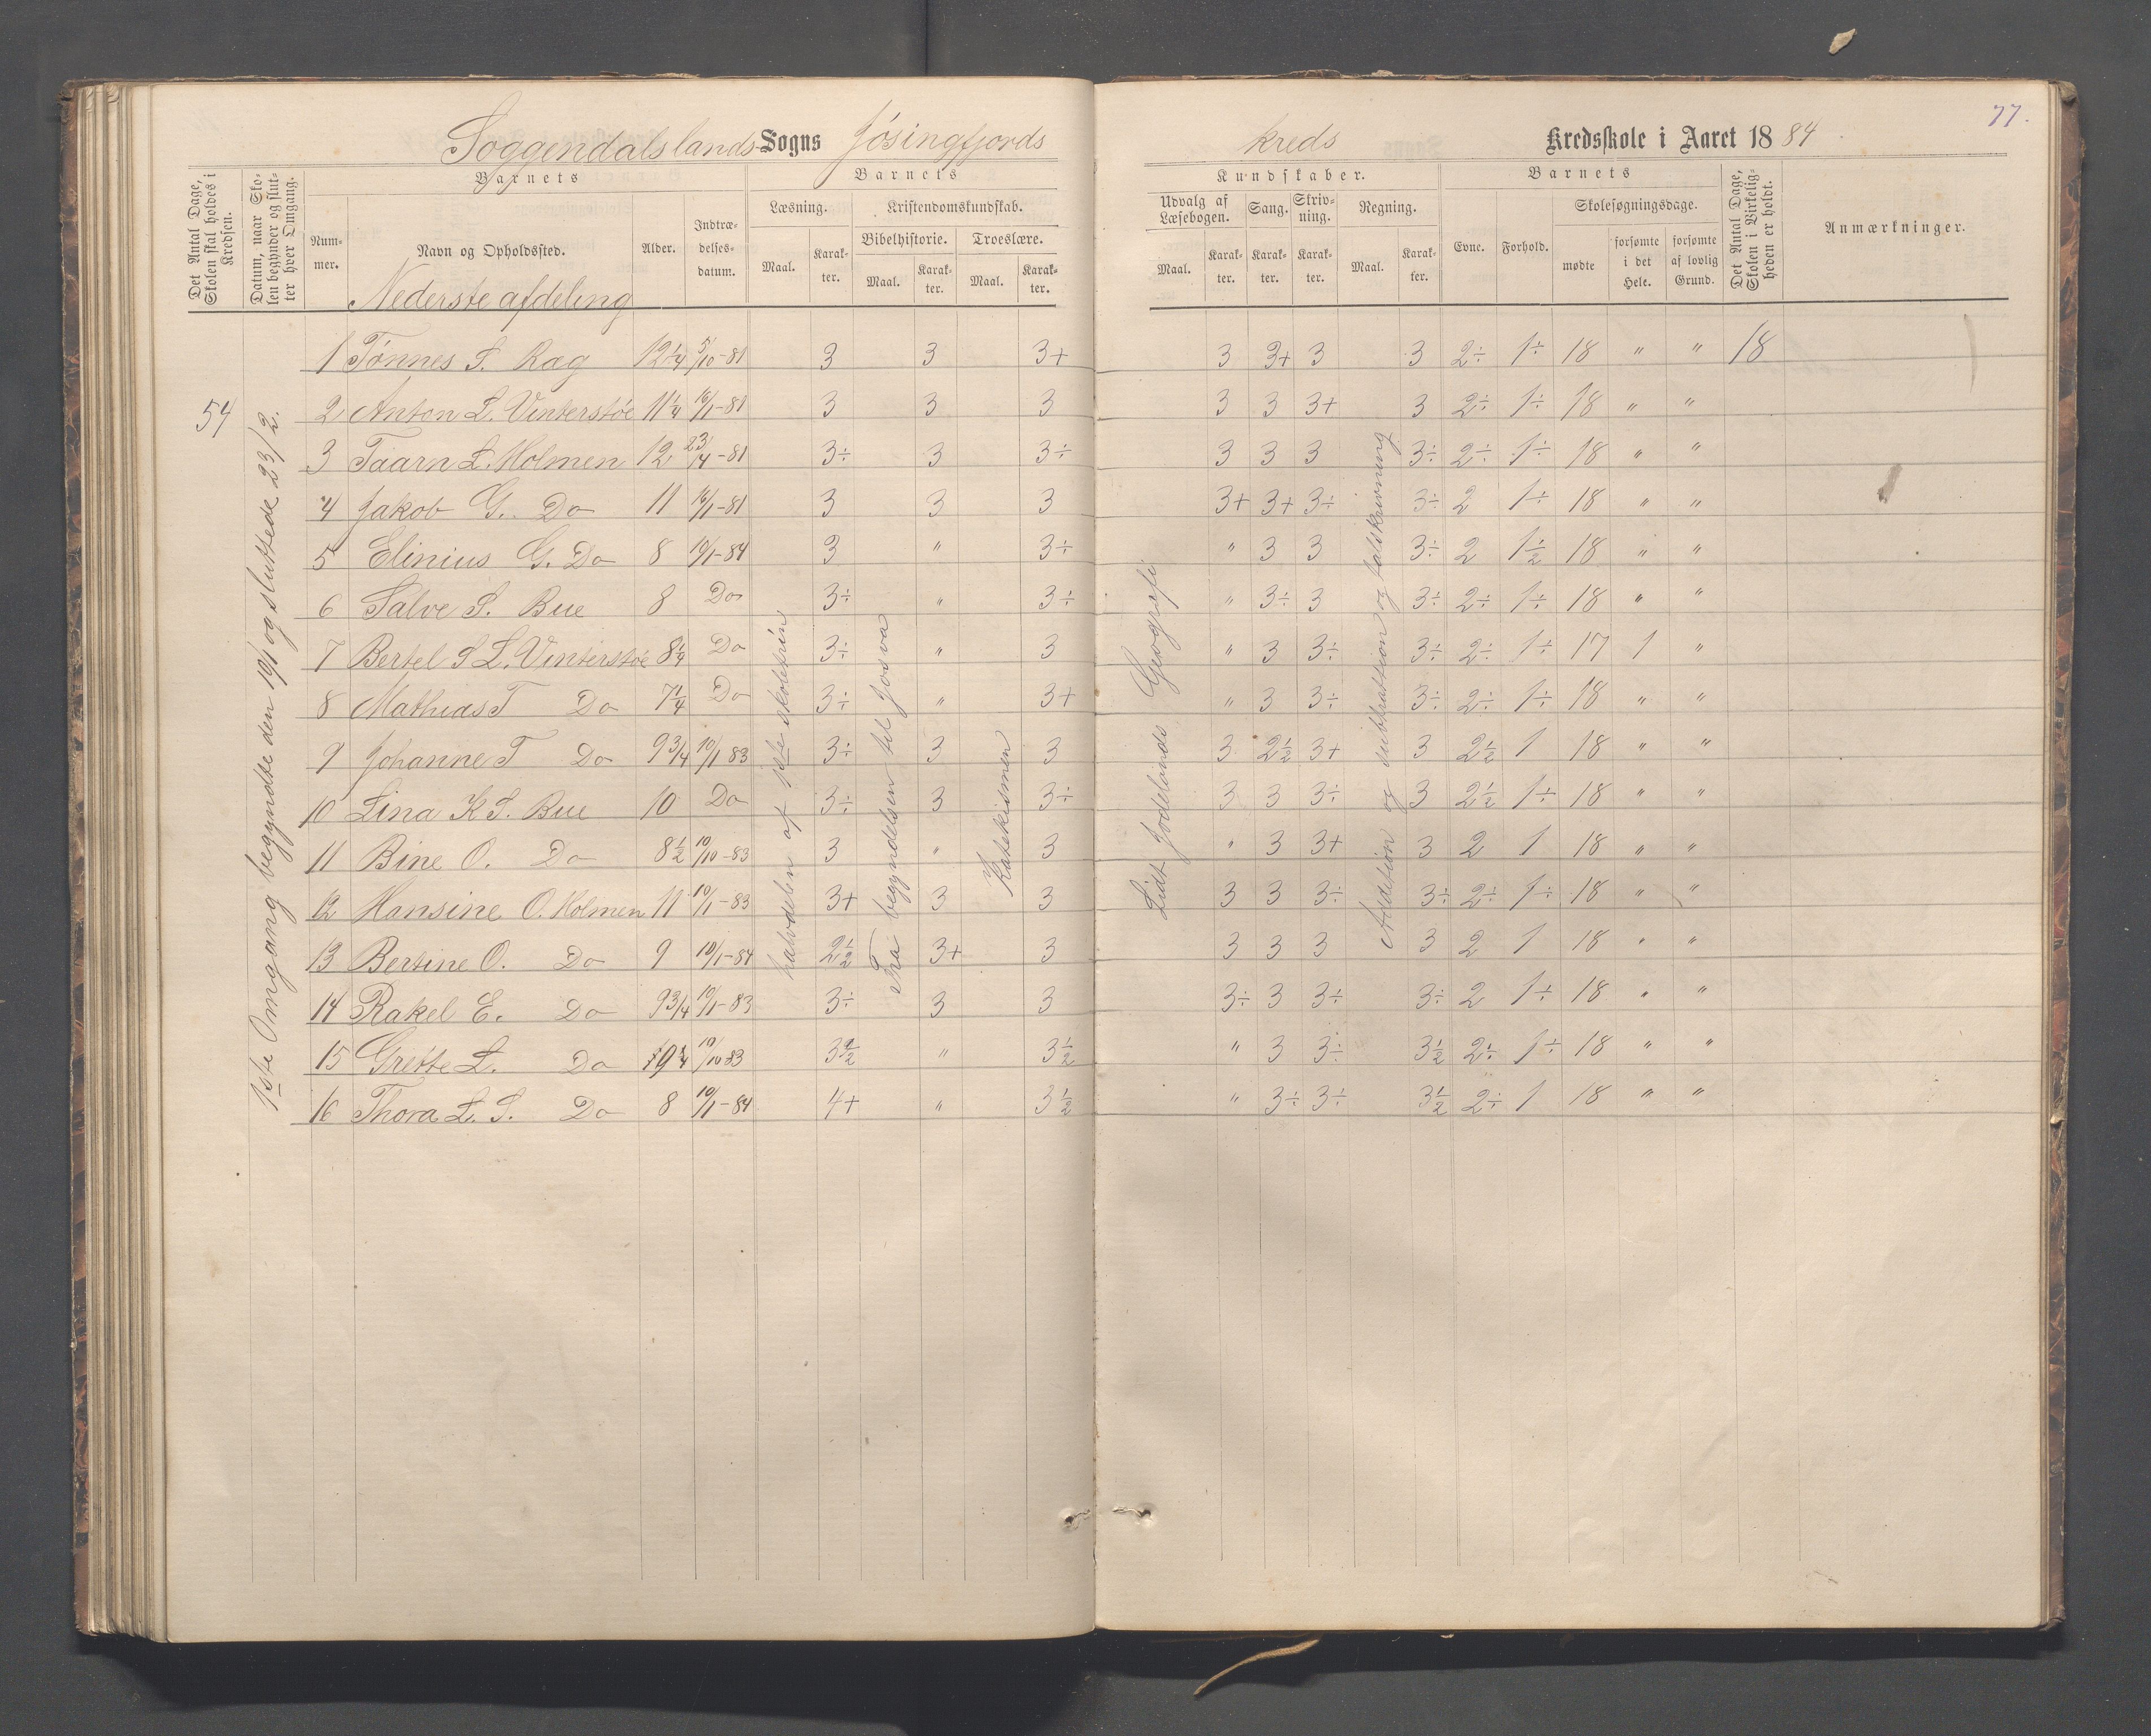 77.
Soggendals lands Sogns Jøsingfjords kreds Kredsskole i Aaret 1884.
Det Antal Dage, Skolen skal holdes i Kredsen.
Datum, naar Skolen begynder og slutter hver Omgang.
Barnets
Nummer.
Navn og Opholdssted.
Alder.
Indtrædelsesdatum.
Barnets
Læsning.
Maal. Karakter.
Kristendomskundskab.
Bibelhistorie. Troeslære.
Maal. Karakter. Maal. Karakter.
Kundskaber.
Udvalg af Læsebogen. Sang. Skrivning. Regning.
Maal. Karakter. Karakter. Karakter. Maal. Karakter.
Barnets
Evne. Forhold.
Skolesøgningsdage.
mødte forsømte i det Hele. forsømte af lovlig Grund.
Det Antal Dage, Skolen i Virkeligheden er holdt.
Anmærkninger.
Nederste afdeling
54
1ste Omgang begyndte den 19/1 og sluttede 23/2.
halvdelen af 1ste skoletrin
Fra begyndelsen til Josva
Katekismen
Lidt Jodelands Geografi
Addition og subtraktion og talskrivning
1 Tønnes S. Rag 12 1/4 5/10-81 3 3 3+ 3 3+ 3 3 2÷ 1÷ 18 " " 18
2 Anton L. Vinterstøe 11 1/4 16/1-81 3 3 3 3 3 3+ 3 2÷ 1÷ 18 " "
3 Taarn L. Holmen 12 23/4-81 3÷ 3 3÷ 3 3 3 3÷ 2÷ 1÷ 18 " "
4 Jakob G. Do 11 16/1-81 3 3 3 3+ 3+ 3÷ 3÷ 2 1÷ 18 " "
5 Elinius G. Do 8 10/1-84 3 " 3÷ " 3 3 3÷ 2 1 1/2 18 " "
6 Salve S. Bue 8 Do 3÷ " 3÷ " 3÷ 3 3÷ 2÷ 1÷ 18 " "
7 Bertel S L. Vinterstøe 8 1/4 Do 3÷ " 3 " 3 3÷ 3÷ 2÷ 1÷ 17 1 "
8 Mathias T Do 7 1/4 Do 3÷ " 3+ " 3 3÷ 3÷ 2÷ 1÷ 18 " "
9 Johanne T Do 9 3/4 10/1 83 3÷ 3 3 3 2 1/2 3+ 3 2 1/2 1 18 " "
10 Lina K S. Bue 10 Do 3÷ 3 3÷ 3 3 3÷ 3 2 1/2 1÷ 18 " "
11 Bine O. Do 8 1/2 10/10-83 3 " 3 " 3 3+ 3 2 1 18 " "
12 Hansine O. Holmen 11 10/1-83 3+ 3 3 3 3 3÷ 3÷ 2÷ 1÷ 18 " "
13 Bertine O. Do 9 10/1-84 2 1/2 3+ 3 3 3 3 3 2 1 18 " "
14 Rakel E. Do 9 3/4 10/1-83 3÷ 3 3 3÷ 3 3÷ 3÷ 2 1÷ 18 " "
15 Grette L. Do 9 1/4 10/10 83 3 1/2 " 3 1/2 " 3 3÷ 3 1/2 2÷ 1÷ 18 " "
16 Thora L. S. Do 8 10/1-84 4+ " 3 1/2 " 3÷ 3÷ 3 1/2 2÷ 1 18 " "